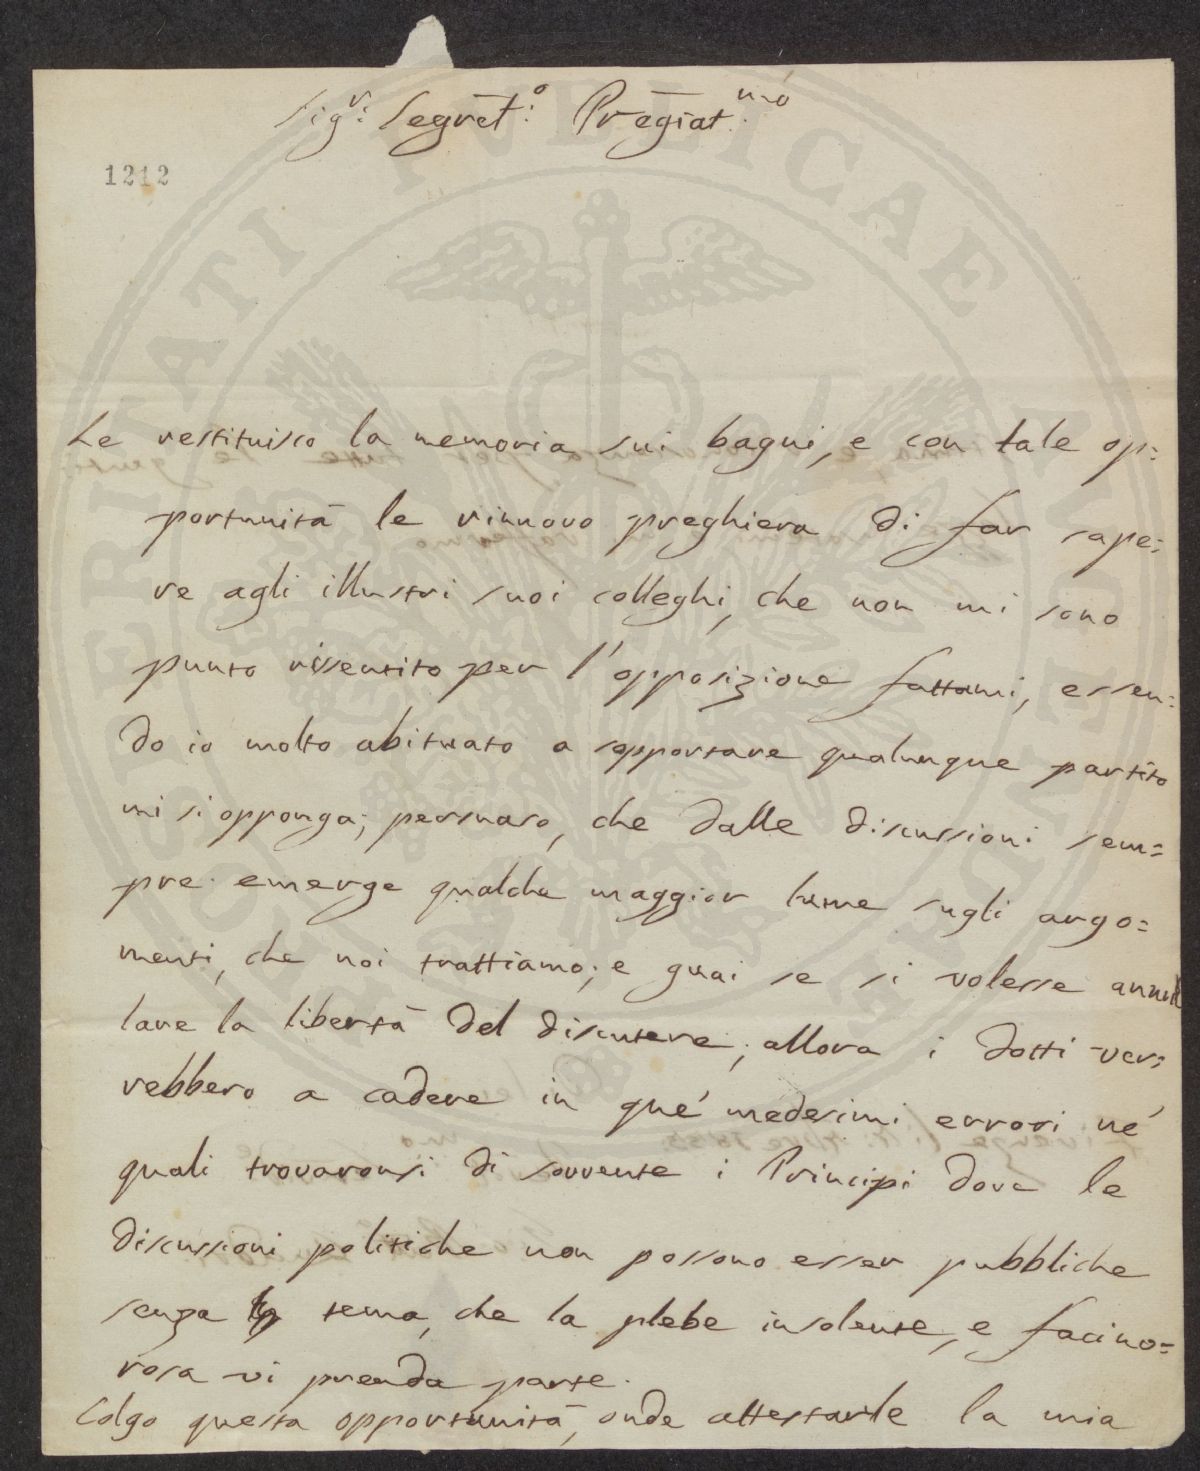 Sig.r Segret.o Pregiat.mo
1212
Le restituisco la memoria sui bagni, e con tale op:
portunità le rinnovo preghiera di far sape:
re agli illustri suoi colleghi, che non mi sono
punto rissentito per l'opposizione fattami, essen:
do io molto abituato a sopportare qualunque partito
mi si opponga; persuaso, che dalle discussioni sem=
pre emerge qualche maggior lume sugli argo=
menti, che noi trattiamo; e guai se si volesse annul
lare la libertà del discutere; allora i dotti ver:
rebbero a cadere in que' medesimi errori ne'
quali trovaronsi di sovvente i Principi dove le
discussioni politiche non possono esser pubbliche
senza tema, che la plebe insolente, e facino=
rosa vi prenda parte.
Colgo questa opportunità, onde attestarle la mia